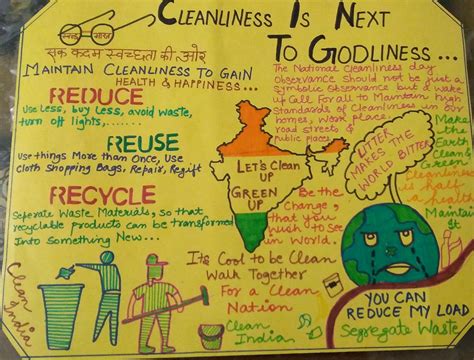 CLEANLINESS IS NEXT
TO GODLINESS...
स्वच्छ भारत
एक कदम स्वच्छता की ओर
MAINTAIN CLEANLINESS TO GAIN
HEALTH & HAPPINESS...
The National Cleanliness day
Observance Should not be just a
Symbolic Observance but a wake
up Call For all to Maintain high
Standards of Cleanliness in our
homes, work place,
road streets &
Public places.
REDUCE
Use Less, buy Less, avoid waste,
turn off lights,......
REUSE
Use things More than Once, Use
Cloth Shopping Bags, Repair, Regift
RECYCLE
Seperate Waste Materials, so that
recyclable products can be transformed
Into Something New...
LET'S CLEAN
UP
GREEN
UP
Be the
Change,
that you
wish to see
in World.
LITTER
MAKES THE
WORLD BITTER
Make
the
Earth
Clean, Green
Cleanliness
is half
a health
It's Cool to be Clean
Walk Together
For a Clean
Nation
Clean
India
Clean
India
YOU CAN
REDUCE MY LOAD
Segregate Waste